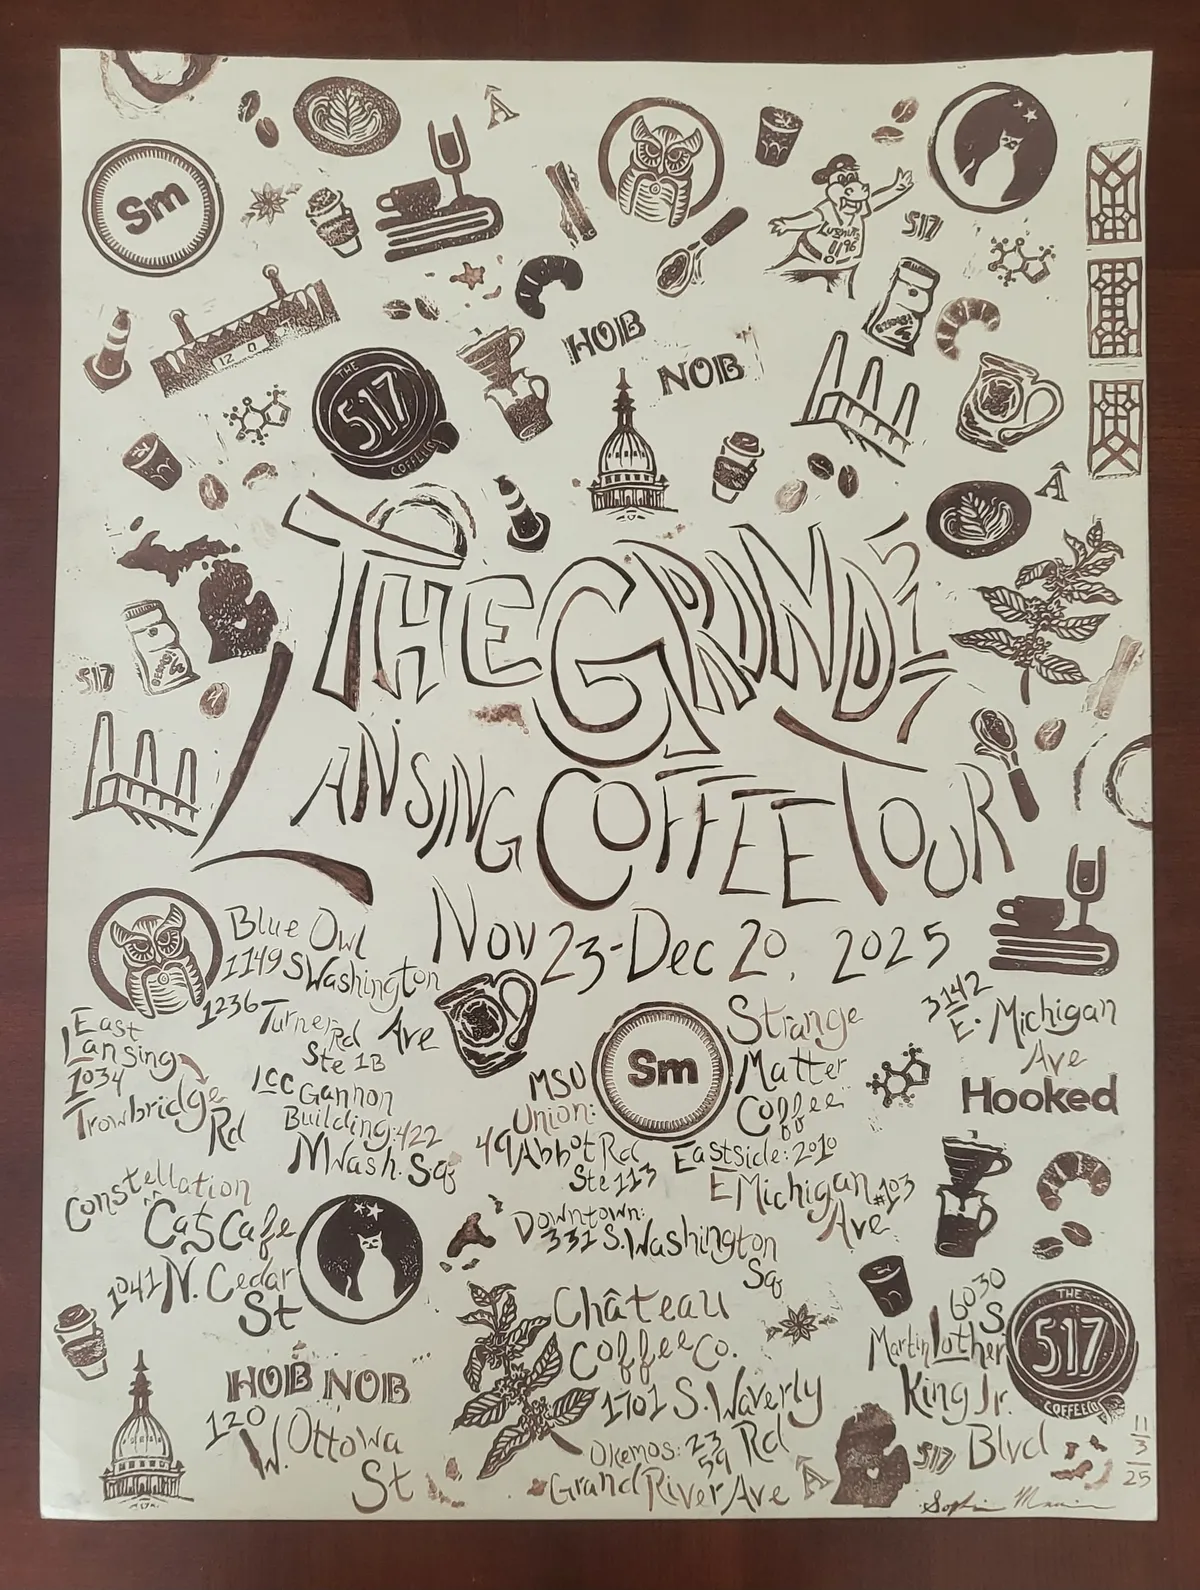 Â
Sm
Lugnuts
0196
517
HOB
NOB
12 0
THE
517
COFFEE CO
Â
THE GRIND 517
517
LANSING COFFEE TOUR
Nov 23-Dec 20, 2025
Blue Owl
1149 S Washington
Ave
1236 Turner Rd
Ste 1B
East
Lansing
1034
Trowbridge
Rd
LCC Gannon
Building: 422
N Wash. Sq
Sm
Strange
Matter
Coffee
MSU
Union:
49 Abbot Rd
Ste 113
Eastside: 2010
E Michigan #103
Ave
Downtown:
331 S. Washington
Sq
3142
E. Michigan
Ave
Hooked
Constellation
Cat Cafe
1041 N. Cedar
St
Château
Coffee Co.
1701 S. Waverly
Rd
Okemos: 2359
Grand River Ave
Â
HOB NOB
120
W. Ottowa
St
6030
S
Martin Luther
King Jr.
Blvd
THE
517
COFFEE CO
517
11
3
25